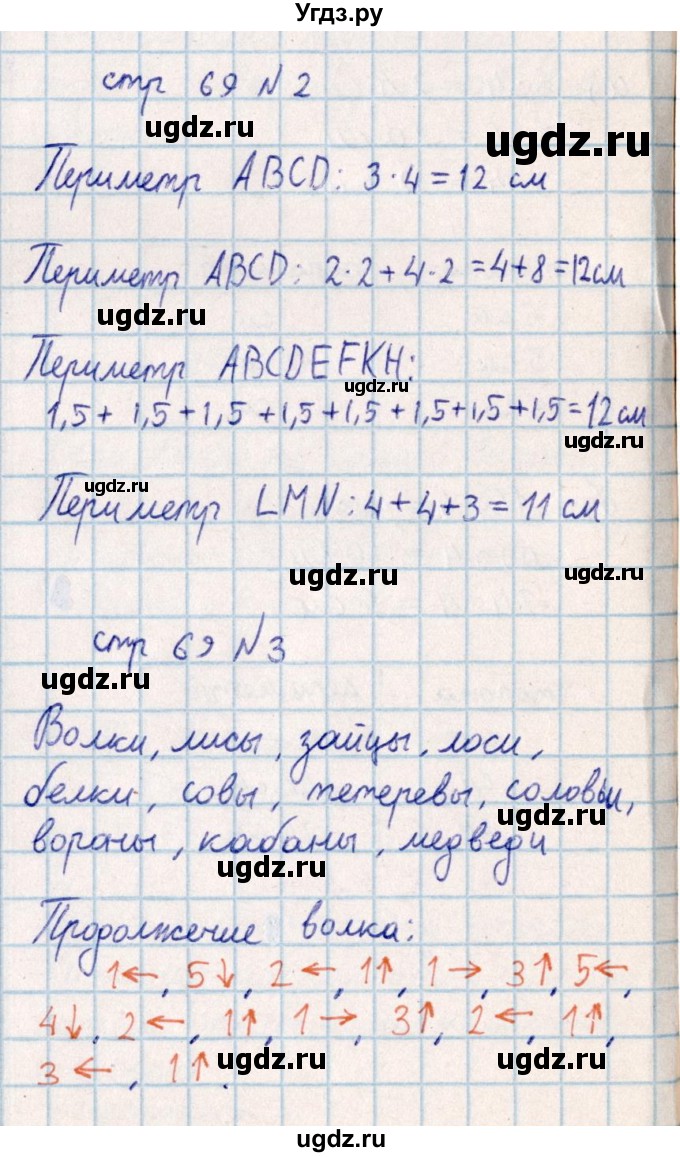 Угдз.ру
стр 69 N 2
ugdz.ru
ugdz.ru
Периметр ABCD: 3·4=12 см
Периметр ABCD: 2·2+4·2=4+8=12см
ugdz.ru
Периметр ABCDEFKH:
ugdz.ru
1,5+1,5+1,5+1,5+1,5+1,5+1,5+1,5=12см
ugdz.ru
ugdz.ru
Периметр LMN: 4+4+3=11 см
ugdz.ru
ugdz.ru
стр 69 N 3
ugdz.ru
Волки, лисы, зайцы, лоси,
белки, совы, тетеревы, соловьи,
ugdz.ru
вораны, кабаны, медведи
ugdz.ru
Продолжение волка:
1←, 5↓, 2←, 1↑, 1→, 3↑, 5←,
4↓, 2←, 1↑, 1→, 3↑, 2←, 1↑,
3←, 1↑.
ugdz.ru
ugdz.ru
ugdz.ru